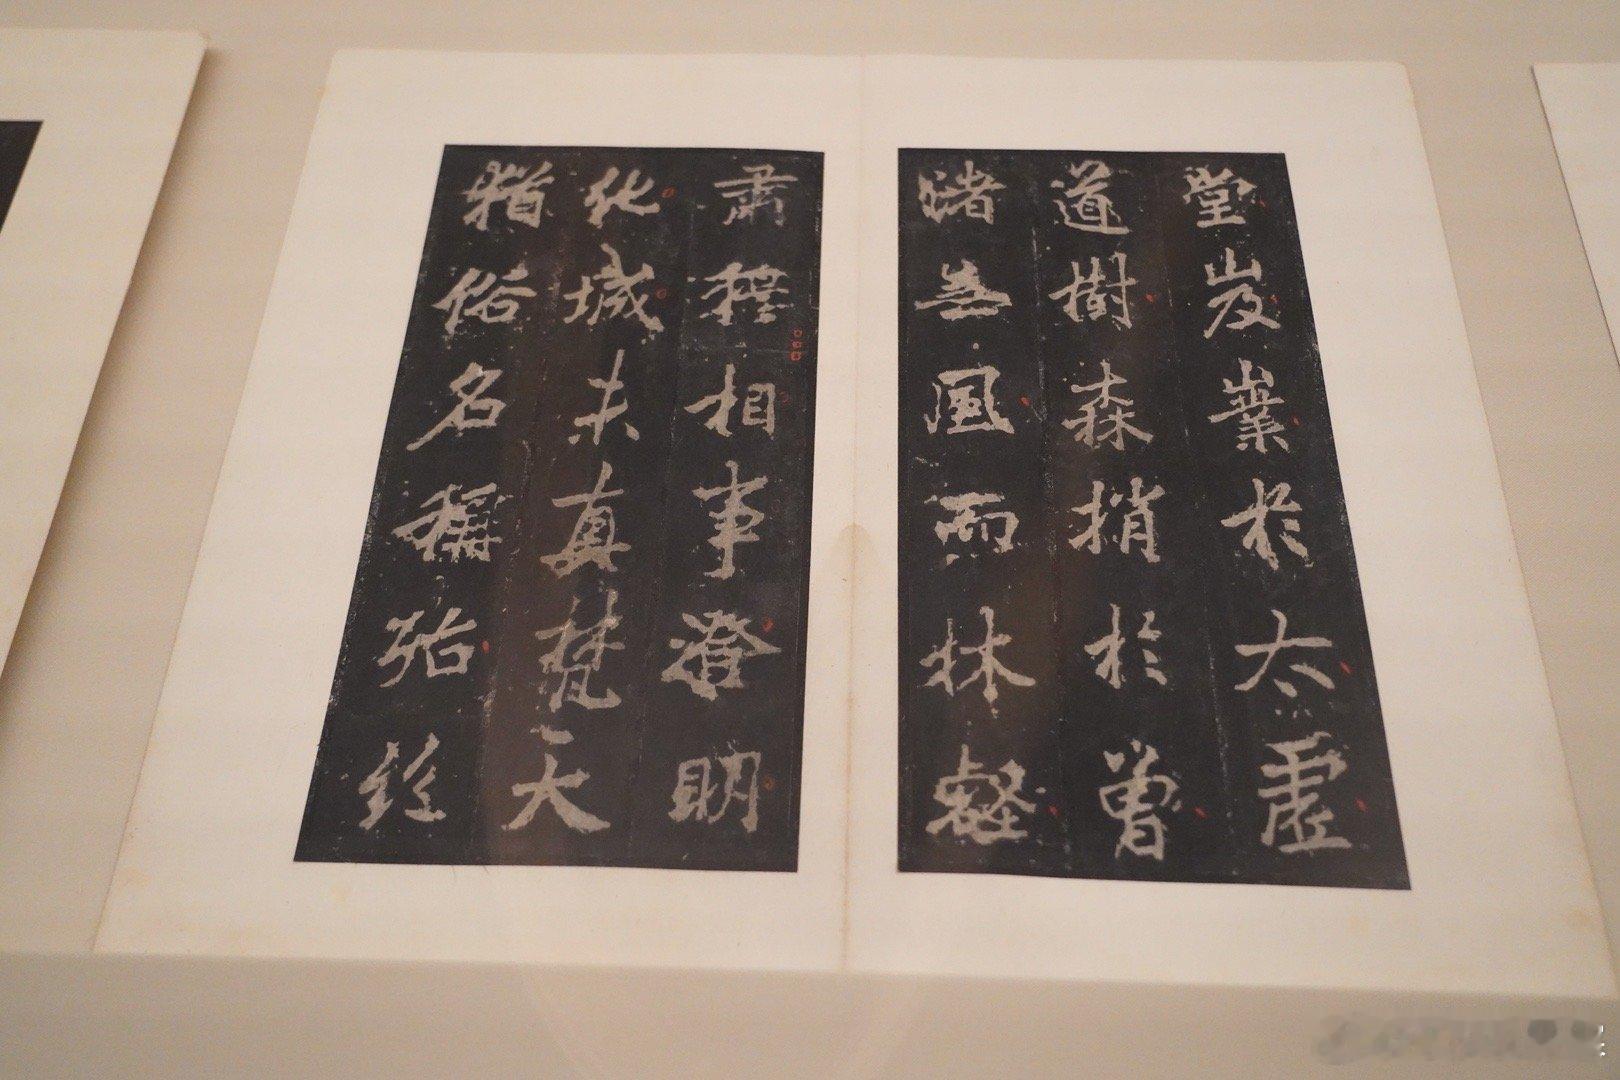 堂岌嶪於太虛
道樹森捎於曾
渚無風而林壑
肅穆相事澄明
化城未真梵天
猶俗名稱殆絕